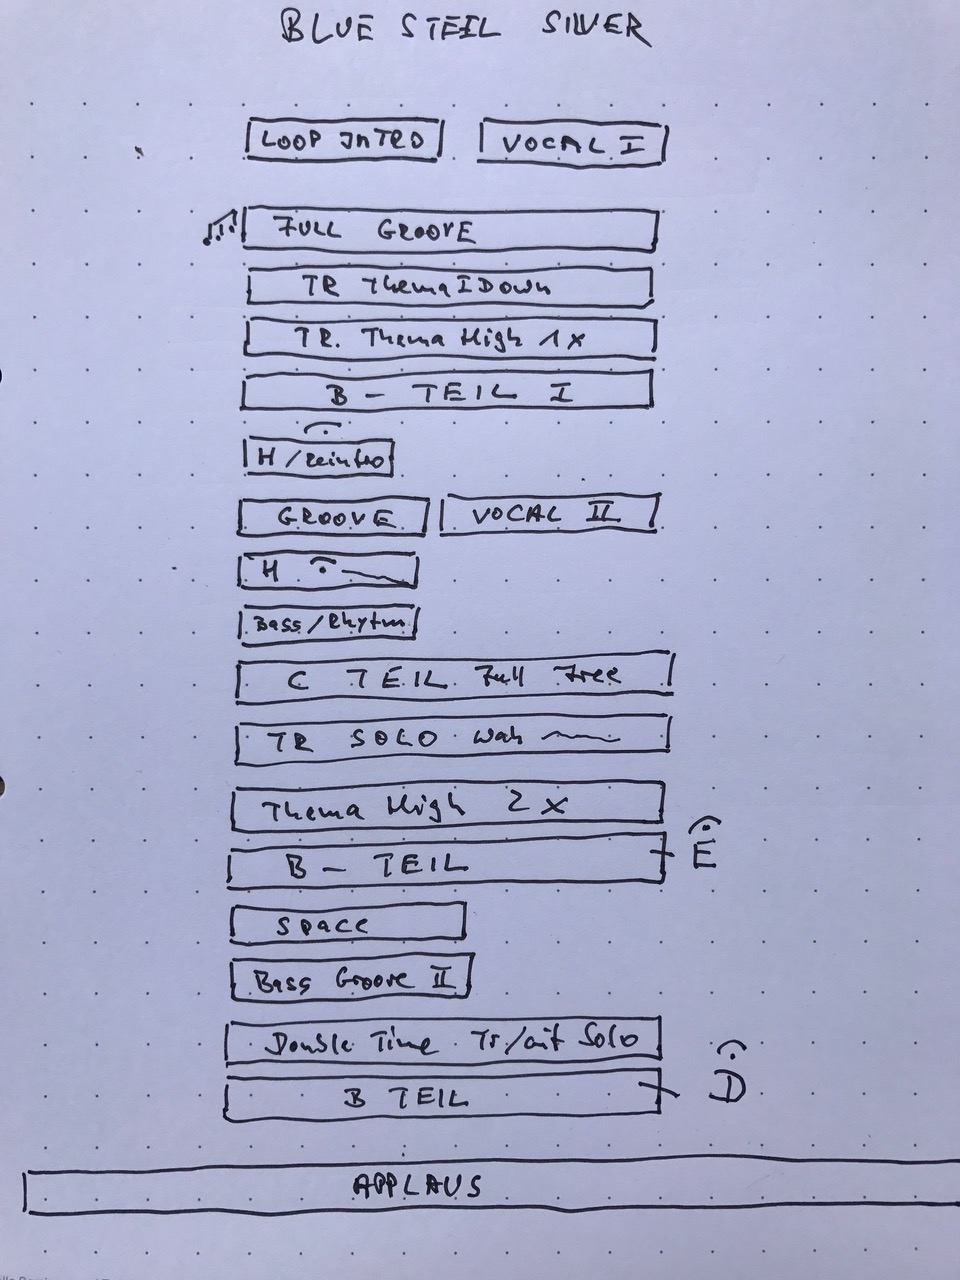 BLUE STEIL SILVER
LOOP INTRO VOCAL I
FULL GROOVE
TR Thema I Down
TR. Thema High 1x
B - TEIL I
H / Reintro
GROOVE VOCAL II
H
Bass / Rhytm
C TEIL Full Free
TR SOLO wah
Thema High 2x
B - TEIL
E
Space
Bass Groove II
Double Time Tr/Git Solo
B TEIL
D
APPLAUS